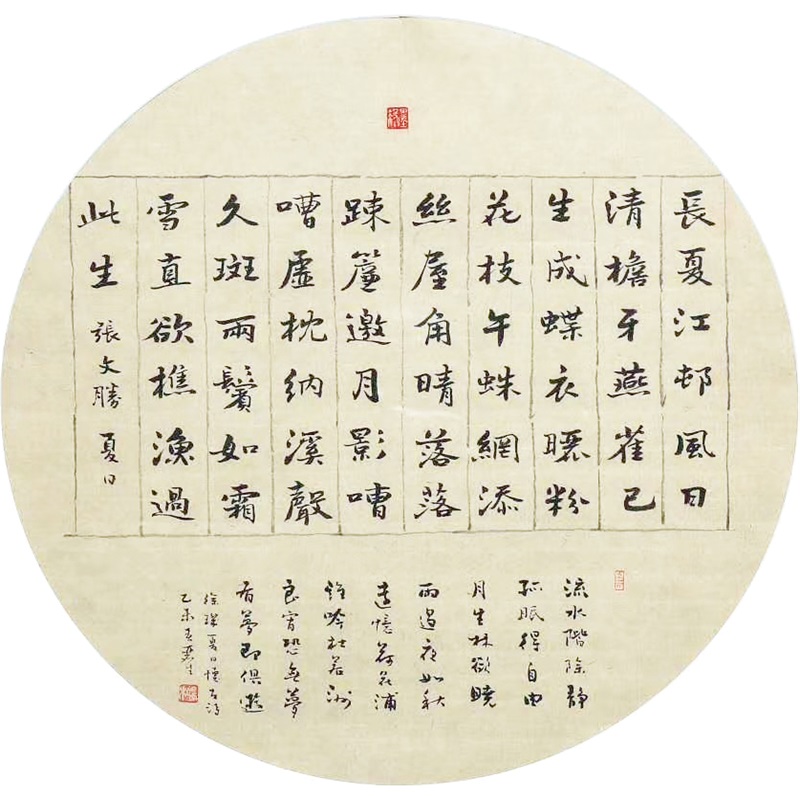 長夏江邨風日
清檐牙燕雀已
生成蝶衣曬粉
花枝午蛛網添
絲屋角晴落落
踈簾邀月影嘈
嘈虛枕納溪聲
久斑兩鬢如霜
雪直欲樵漁過
此生 張文勝 夏日
流水階除靜
孤眠得自由
月生林欲曉
雨過夜如秋
遠憶荷花浦
誰吟杜若洲
良宵恐無夢
有夢即俱遊
徐璣夏日懷友詩
乙未